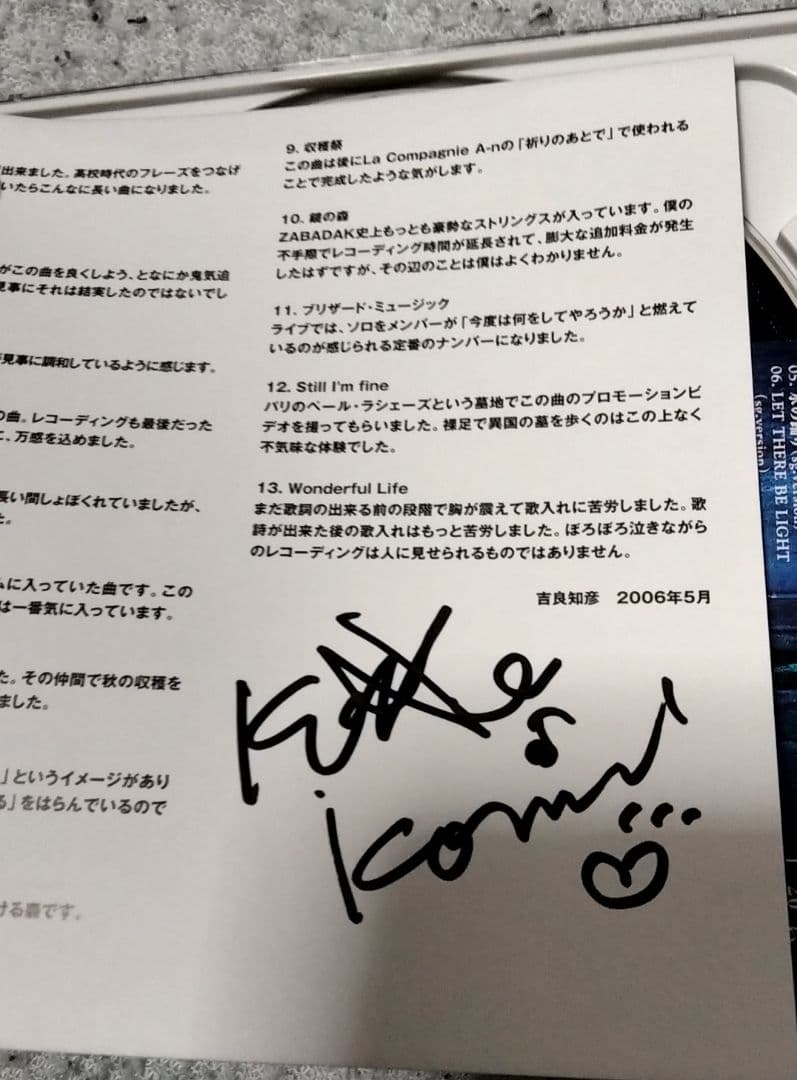 出来ました。高校時代のフレーズをつなげ
いたらこんなに長い曲になりました。
がこの曲を良くしよう、となにか鬼気迫
見事にそれは結実したのではないでし
見事に調和しているように感じます。
の曲。レコーディングも最後だった
に、万感を込めました。
長い間しょぼくれていましたが、
た。
ムに入っていた曲です。この
は一番気に入っています。
た。その仲間で秋の収穫を
ました。
」というイメージがあり
る」をはらんでいるので
ける轟です。
9. 収穫祭
この曲は後にLa Compagnie A-nの「祈りのあとで」で使われる
ことで完成したような気がします。
10. 鏡の森
ZABADAK史上もっとも豪勢なストリングスが入っています。僕の
不手際でレコーディング時間が延長されて、膨大な追加料金が発生
したはずですが、その辺のことは僕はよくわかりません。
11. ブリザード・ミュージック
ライブでは、ソロをメンバーが「今度は何をしてやろうか」と燃えて
いるのが感じられる定番のナンバーになりました。
12. Still I'm fine
パリのペール・ラシェーズという墓地でこの曲のプロモーションビ
デオを撮ってもらいました。裸足で異国の墓を歩くのはこの上なく
不気味な体験でした。
13. Wonderful Life
まだ歌詞の出来る前の段階で胸が震えて歌入れに苦労しました。歌
詩が出来た後の歌入れはもっと苦労しました。ぼろぼろ泣きながら
のレコーディングは人に見せられるものではありません。
吉良知彦 2006年5月
06. LET THERE BE LIGHT
(sg.version)